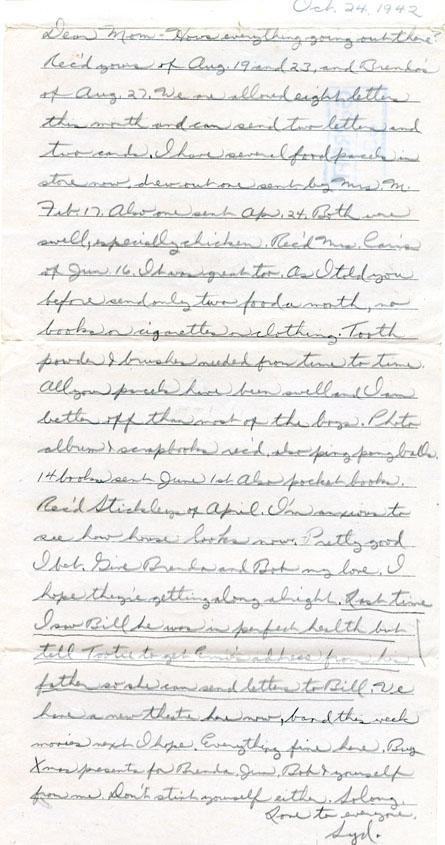 Oct. 24, 1942
Dear Mom - Hows everything going out there?
Rec'd yours of Aug. 19 and 23, and Brenda's
of Aug. 27. We are allowed eight letters
this month and can send two letters and
two cards. I have several food parcels in
store now drew out one sent by Mrs. M.
Feb. 17. Also one sent Apr. 24. Both were
swell, especially chicken. Rec'd Mrs.
of Jun. 16. It was great too. As I told you
before send only two food a month, no
books or cigarettes or clothing. Tooth
powder & brushes needed from time to time.
All your parcels have been swell and I am
better off than most of the boys. Photo
album & scrapbooks rec'd, also ping pong balls.
14 books sent June 1st Also pocket books.
Rec'd Stickleys of April. I'm anxious to
see how house looks now. Pretty good
I bet. Give Brenda and Bob my love. I
hope they're getting along alright. Last time
I saw Bill he was in perfect health but
tell Tootie to get address from his
father so she can send letters to Bill. We
have a new theatre here now, band this week
movies next I hope. Everything fine here. Buy
Xmas presents for Brenda, Jim, Bob & yourself
from me. Don't stint yourself either. So long.
Love to everyone.
Syd.